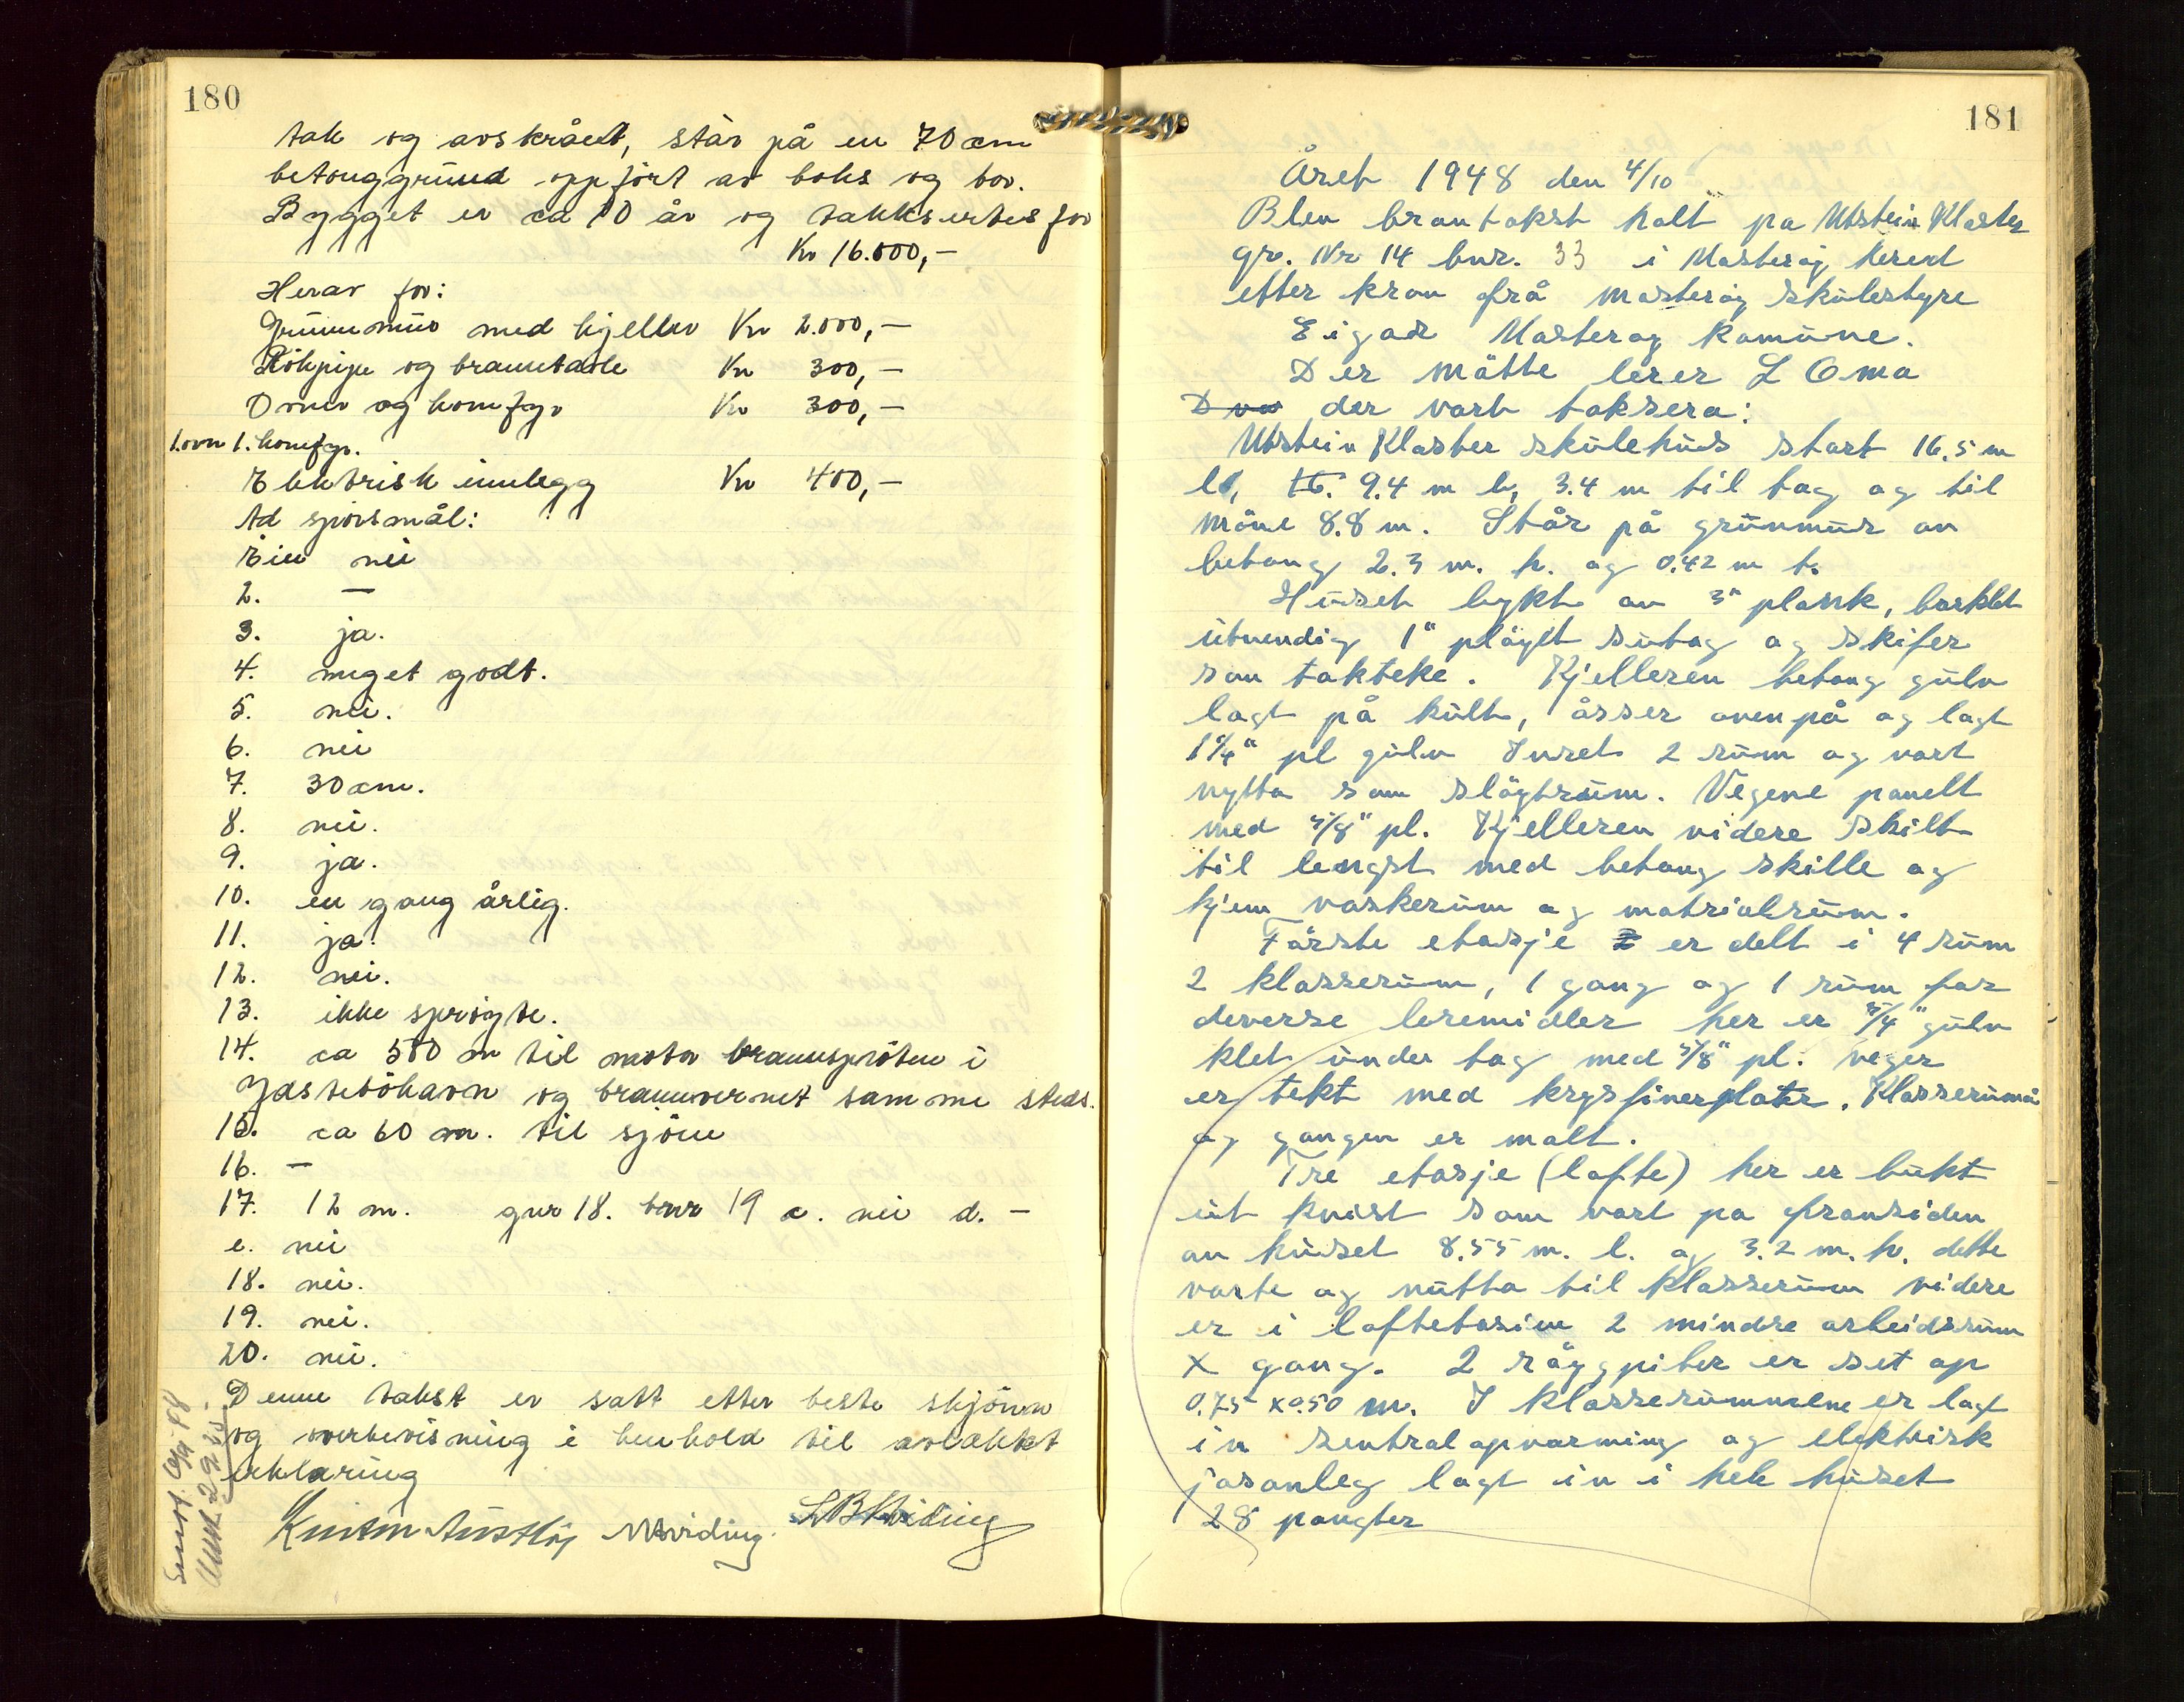 180
tak og avskrådt, står på en 70 cm
betonggrund oppført av boks og bov.
Bygget er ca 10 år og taksertes for
Kr 16.000,-
Herav for:
Grunnmur med kjeller Kr 2.000,-
Rökpipe og branntavle Kr 300,-
Ovner og komfyr Kr 300,-
1.ovn 1. komfyr.
Elektrisk innlegg Kr 400,-
Ad spörsmål:
Ein nei
2. —
3. ja.
4. meget godt.
5. nei.
6. nei
7. 30 cm.
8. nei.
9. ja.
10. en gang årlig.
11. ja.
12. nei.
13. ikke spröyte.
14. ca 500 m til motor brannspröten i
og brannvernet samme steds.
15. ca 60 m. til sjöen
16. —
17. 12 m. gnr 18. bnr 19 c. nei d. —
e. nei
18. nei.
19. nei.
20. nei.
Denne takst er satt etter beste skjönn
og overbevisning i henhold til avlakkt
erklæring
181
Året 1948 den 4/10
Blev brantakst halt pa Utstein Kloster
gr. Nr 14 bnr. 33 i Mosteröy hered
etter krav frå mosteröy skulestyre
Eigar Mosteroy komune.
Der mötte lerer L Omo
D var der vart taksera:
Utstein Kloster skulehus stort 16.5 m
l., 9.4 m b, 3.4 m til tag og til
möne 8.8 m. Står på grunmur av
betong 2.3 m. h. og 0.42 m t.
Huset bykt av 3" plank, borklet
utvendig 1" plöyit sutag og skifer
som takteke. Kjelleren betong gulv
lagt på kult, åsser ovenpå og lagt
1¼" pl gulv Inret 2 rum og vart
nytta som slöytrum. Vegene panelt
med 5/8" pl. Kjelleren videre skilt
til lengst med betong skille og
hjem vaskerum og matrialrum.
Förste etasje er delt i 4 rum
2 klasserum, 1 gang og 1 rum for
deverse leremidler her er 5/4" gulv
klet under tag med 5/8" pl. veger
er tekt med krysfinerplater. Klasserumå
og gangen er malt.
Tre etasje (lofte) her er bukt
ut kvist som vart pa fransiden
av huset 8.55 m. l. og 3.2 m. h. dette
varte og nutta til klasserum videre
er i loftetasien 2 mindre arbeidsrum
x gang. 2 röygpiber er set op
0.75 x 0.50 m. I klasserummene er lagt
in sentralopvarming og elektrisk
josanleg lagt in i hele huset
28 pongter